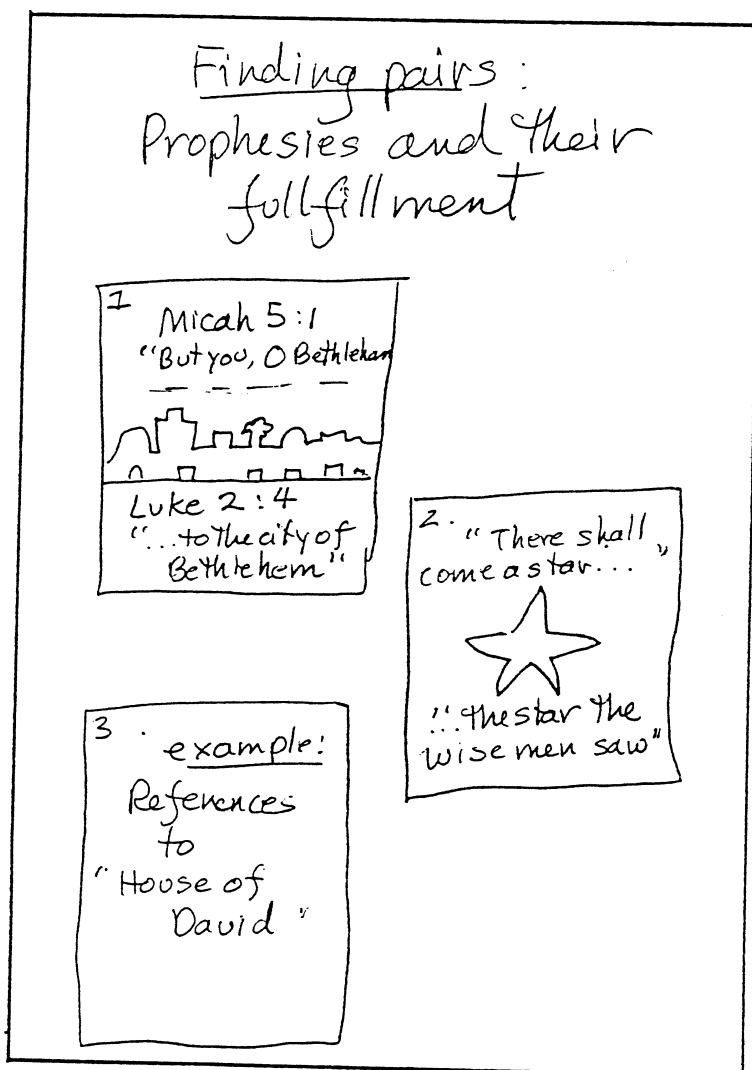 Finding pairs:
Prophesies and their
fullfillment
1
Micah 5:1
"But you, O Bethleham
Luke 2:4
"...to the city of
Bethlehem"
2.
"There shall
come a star..."
"...the star the
wise men saw"
3.
example:
References
to
"House of
David"